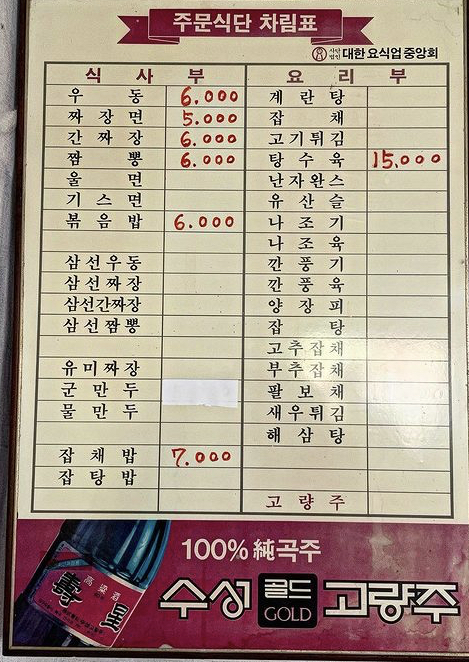 주문식단 차림표
사단법인 대한 요식업 중앙회
식 사 부 요 리 부
우 동 6.000 계 란 탕
짜 장 면 5.000 잡 채
간 짜 장 6.000 고 기 튀 김
짬 뽕 6.000 탕 수 육 15.000
울 면 난 자 완 스
기 스 면 유 산 슬
볶 음 밥 6.000 나 조 기
나 조 육
삼 선 우 동 깐 풍 기
삼 선 짜 장 깐 풍 육
삼선간짜장 양 장 피
삼 선 짬 뽕 잡 탕
고 추 잡 채
유 미 짜 장 부 추 잡 채
군 만 두 팔 보 채
물 만 두 새 우 튀 김
해 삼 탕
잡 채 밥 7.000
잡 탕 밥
고 량 주
100% 純곡주
수성 골드 GOLD 고량주
高粱酒
壽星